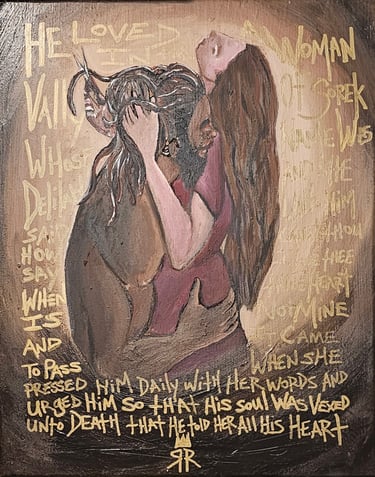 HE LOVED A WOMAN
IN
VALLY OF SOREK
WHOS NAME WAS
DELILAH AND SHE
SAID HIM
HOW THOU
SAY THEE
WHEN HEART
IS NOT MINE
AND CAME
TO PASS WHEN SHE
PRESSED HIM DAILY WITH HER WORDS AND
URGED HIM SO THAT HIS SOUL WAS VEXED
UNTO DEATH THAT HE TOLD HER ALL HIS HEART
RR